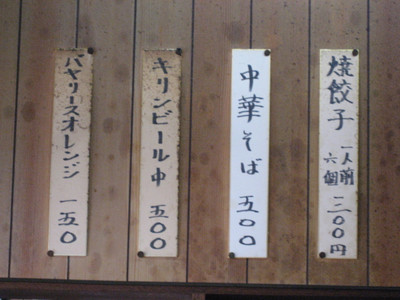 焼餃子 一人前 六個 三〇〇円
中華そば 五〇〇
キリンビール中 五〇〇
バヤリースオレンジ 一五〇